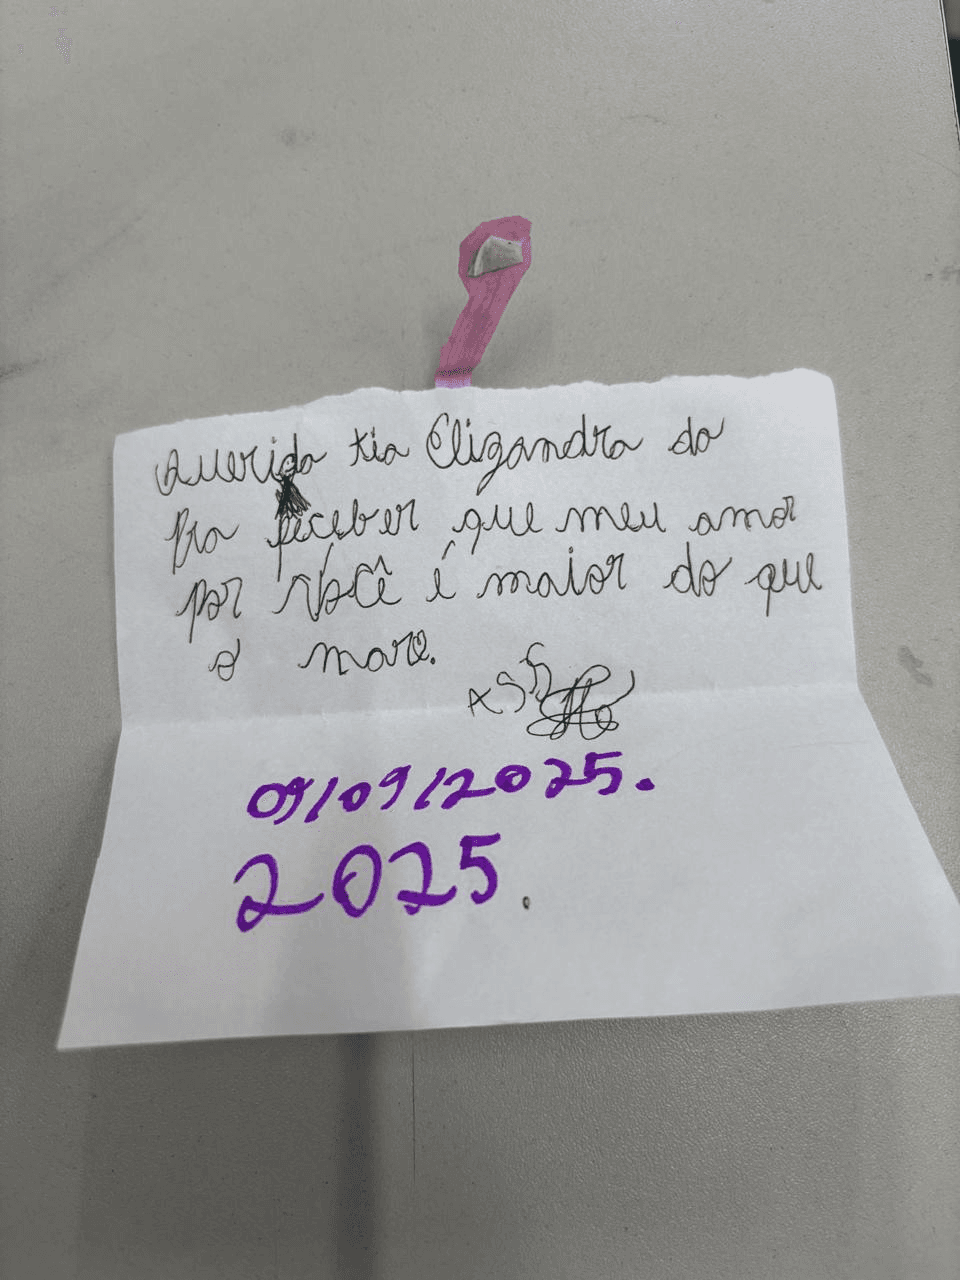 Querida tia Elizandra da
Pra peceber que meu amor
por Você é maior do que
o mare.
ASS
09/09/2025.
2025.